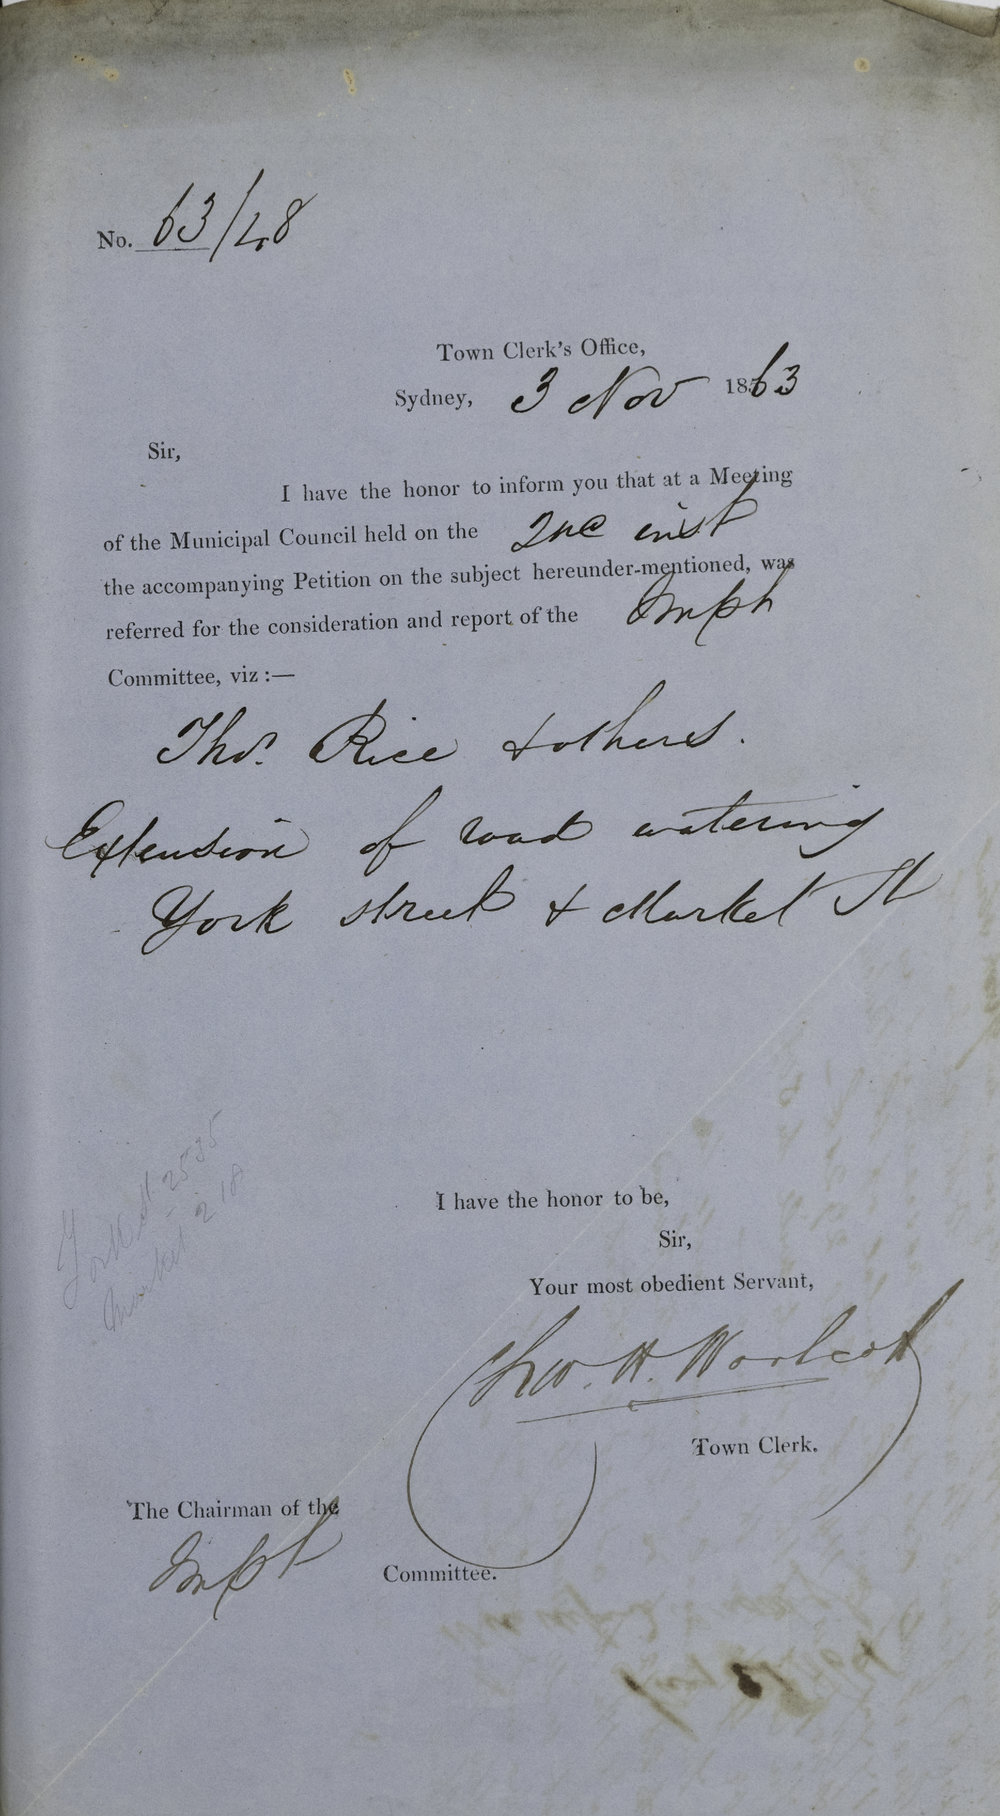 No. 63/48
Town Clerk's Office,
Sydney, 3 Nov 1863
Sir,
I have the honor to inform you that at a Meeting
of the Municipal Council held on the 2nd inst
the accompanying Petition on the subject hereunder-mentioned, was
referred for the consideration and report of the Impt
Committee, viz :—
Thos. Rice & others.
Extension of road watering
York street & Market St
York St 2535
Market 218
I have the honor to be,
Sir,
Your most obedient Servant,
Chas. H. Woolcott
Town Clerk.
The Chairman of the
Impt Committee.